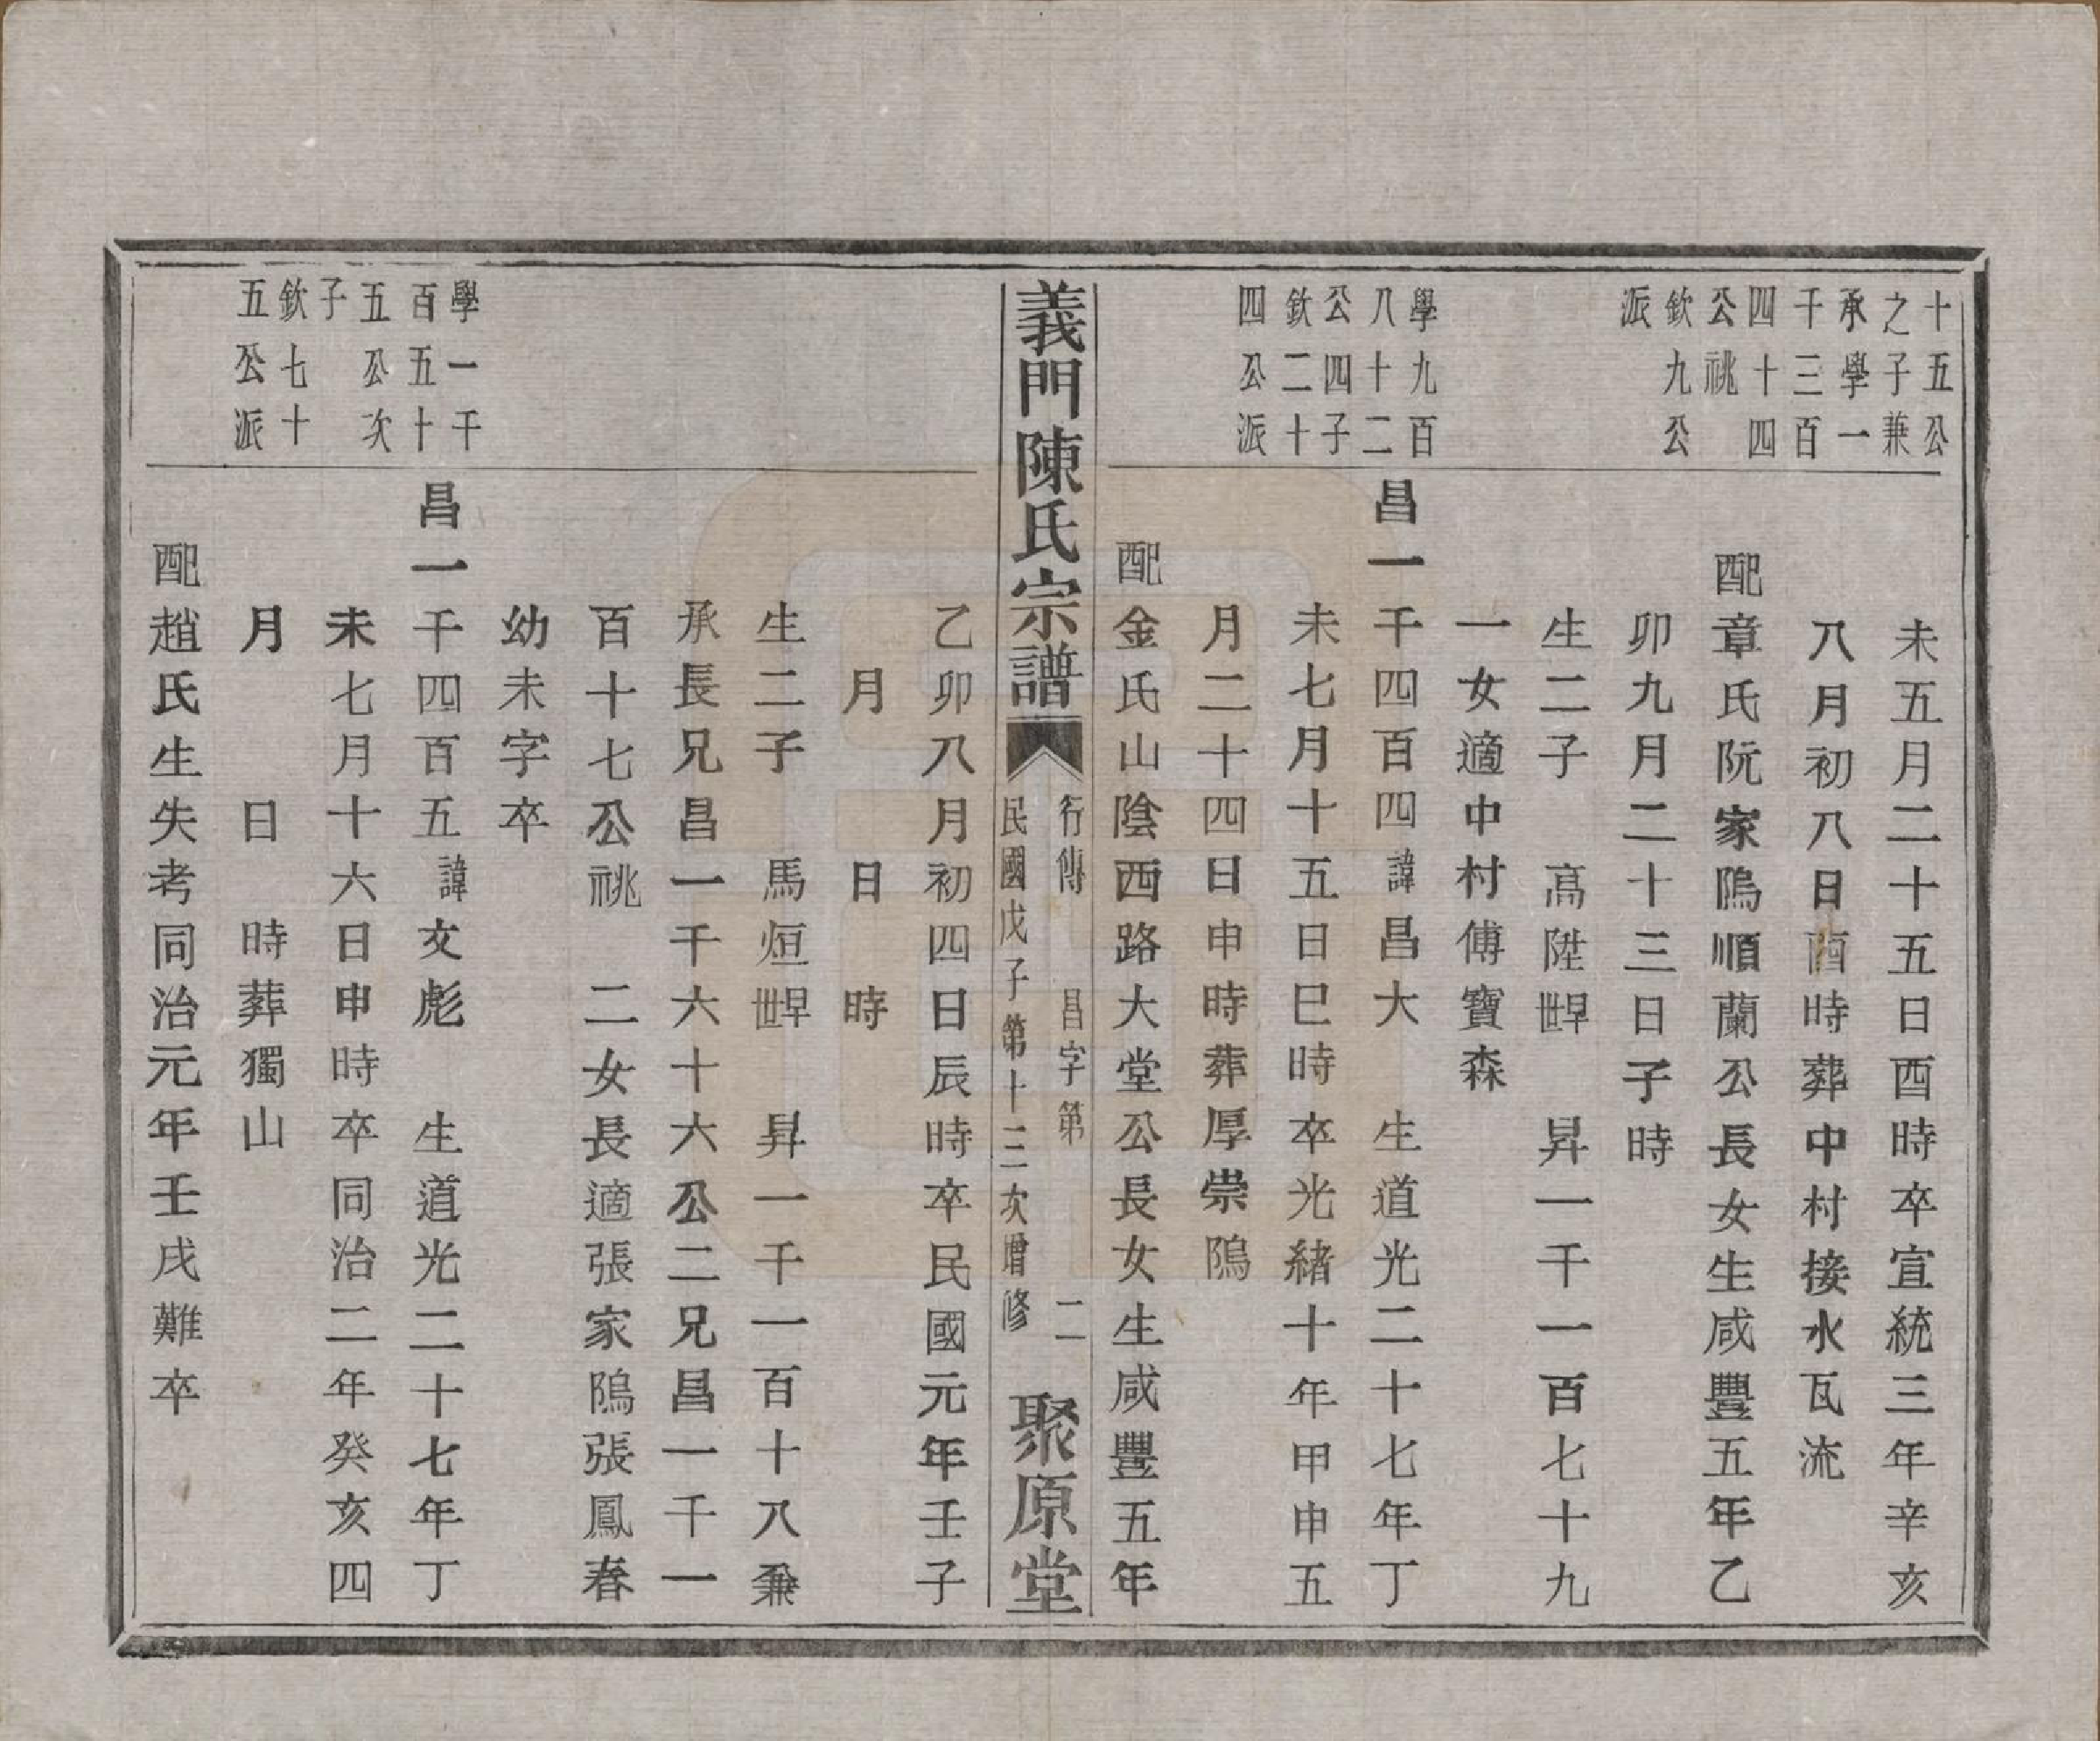 十五公
之子兼
承學一
千三百
四十四
公祧
欽九公
派
未五月二十五日酉時卒宣統三年辛亥
八月初八日酉時葬中村接水瓦流
配章氏阮家隖順蘭公長女生咸豐五年乙
卯九月二十三日子時
生二子　高陞　昇一千一百七十九
一女適中村傅寶森
學九百
八十二
公四子
欽二十
四公派
昌一千四百四諱昌大　生道光二十七年丁
未七月十五日巳時卒光緒十年甲申五
月二十四日申時葬厚崇隖
配金氏山陰西路大堂公長女生咸豐五年
義門陳氏宗譜　行傳　昌字第　二　聚原堂
民國戊子第十三次增修
乙卯八月初四日辰時卒民國元年壬子
月　日　時
生二子　馬烜　昇一千一百十八兼
承長兄昌一千六十六公二兄昌一千一
百十七公祧　二女長適張家隖張鳳春
幼未字卒
學一千
百五十
五公次
子
欽七十
五公派
昌一千四百五諱文彪　生道光二十七年丁
未七月十六日申時卒同治二年癸亥四
月　日　時葬獨山
配趙氏生失考同治元年壬戌難卒